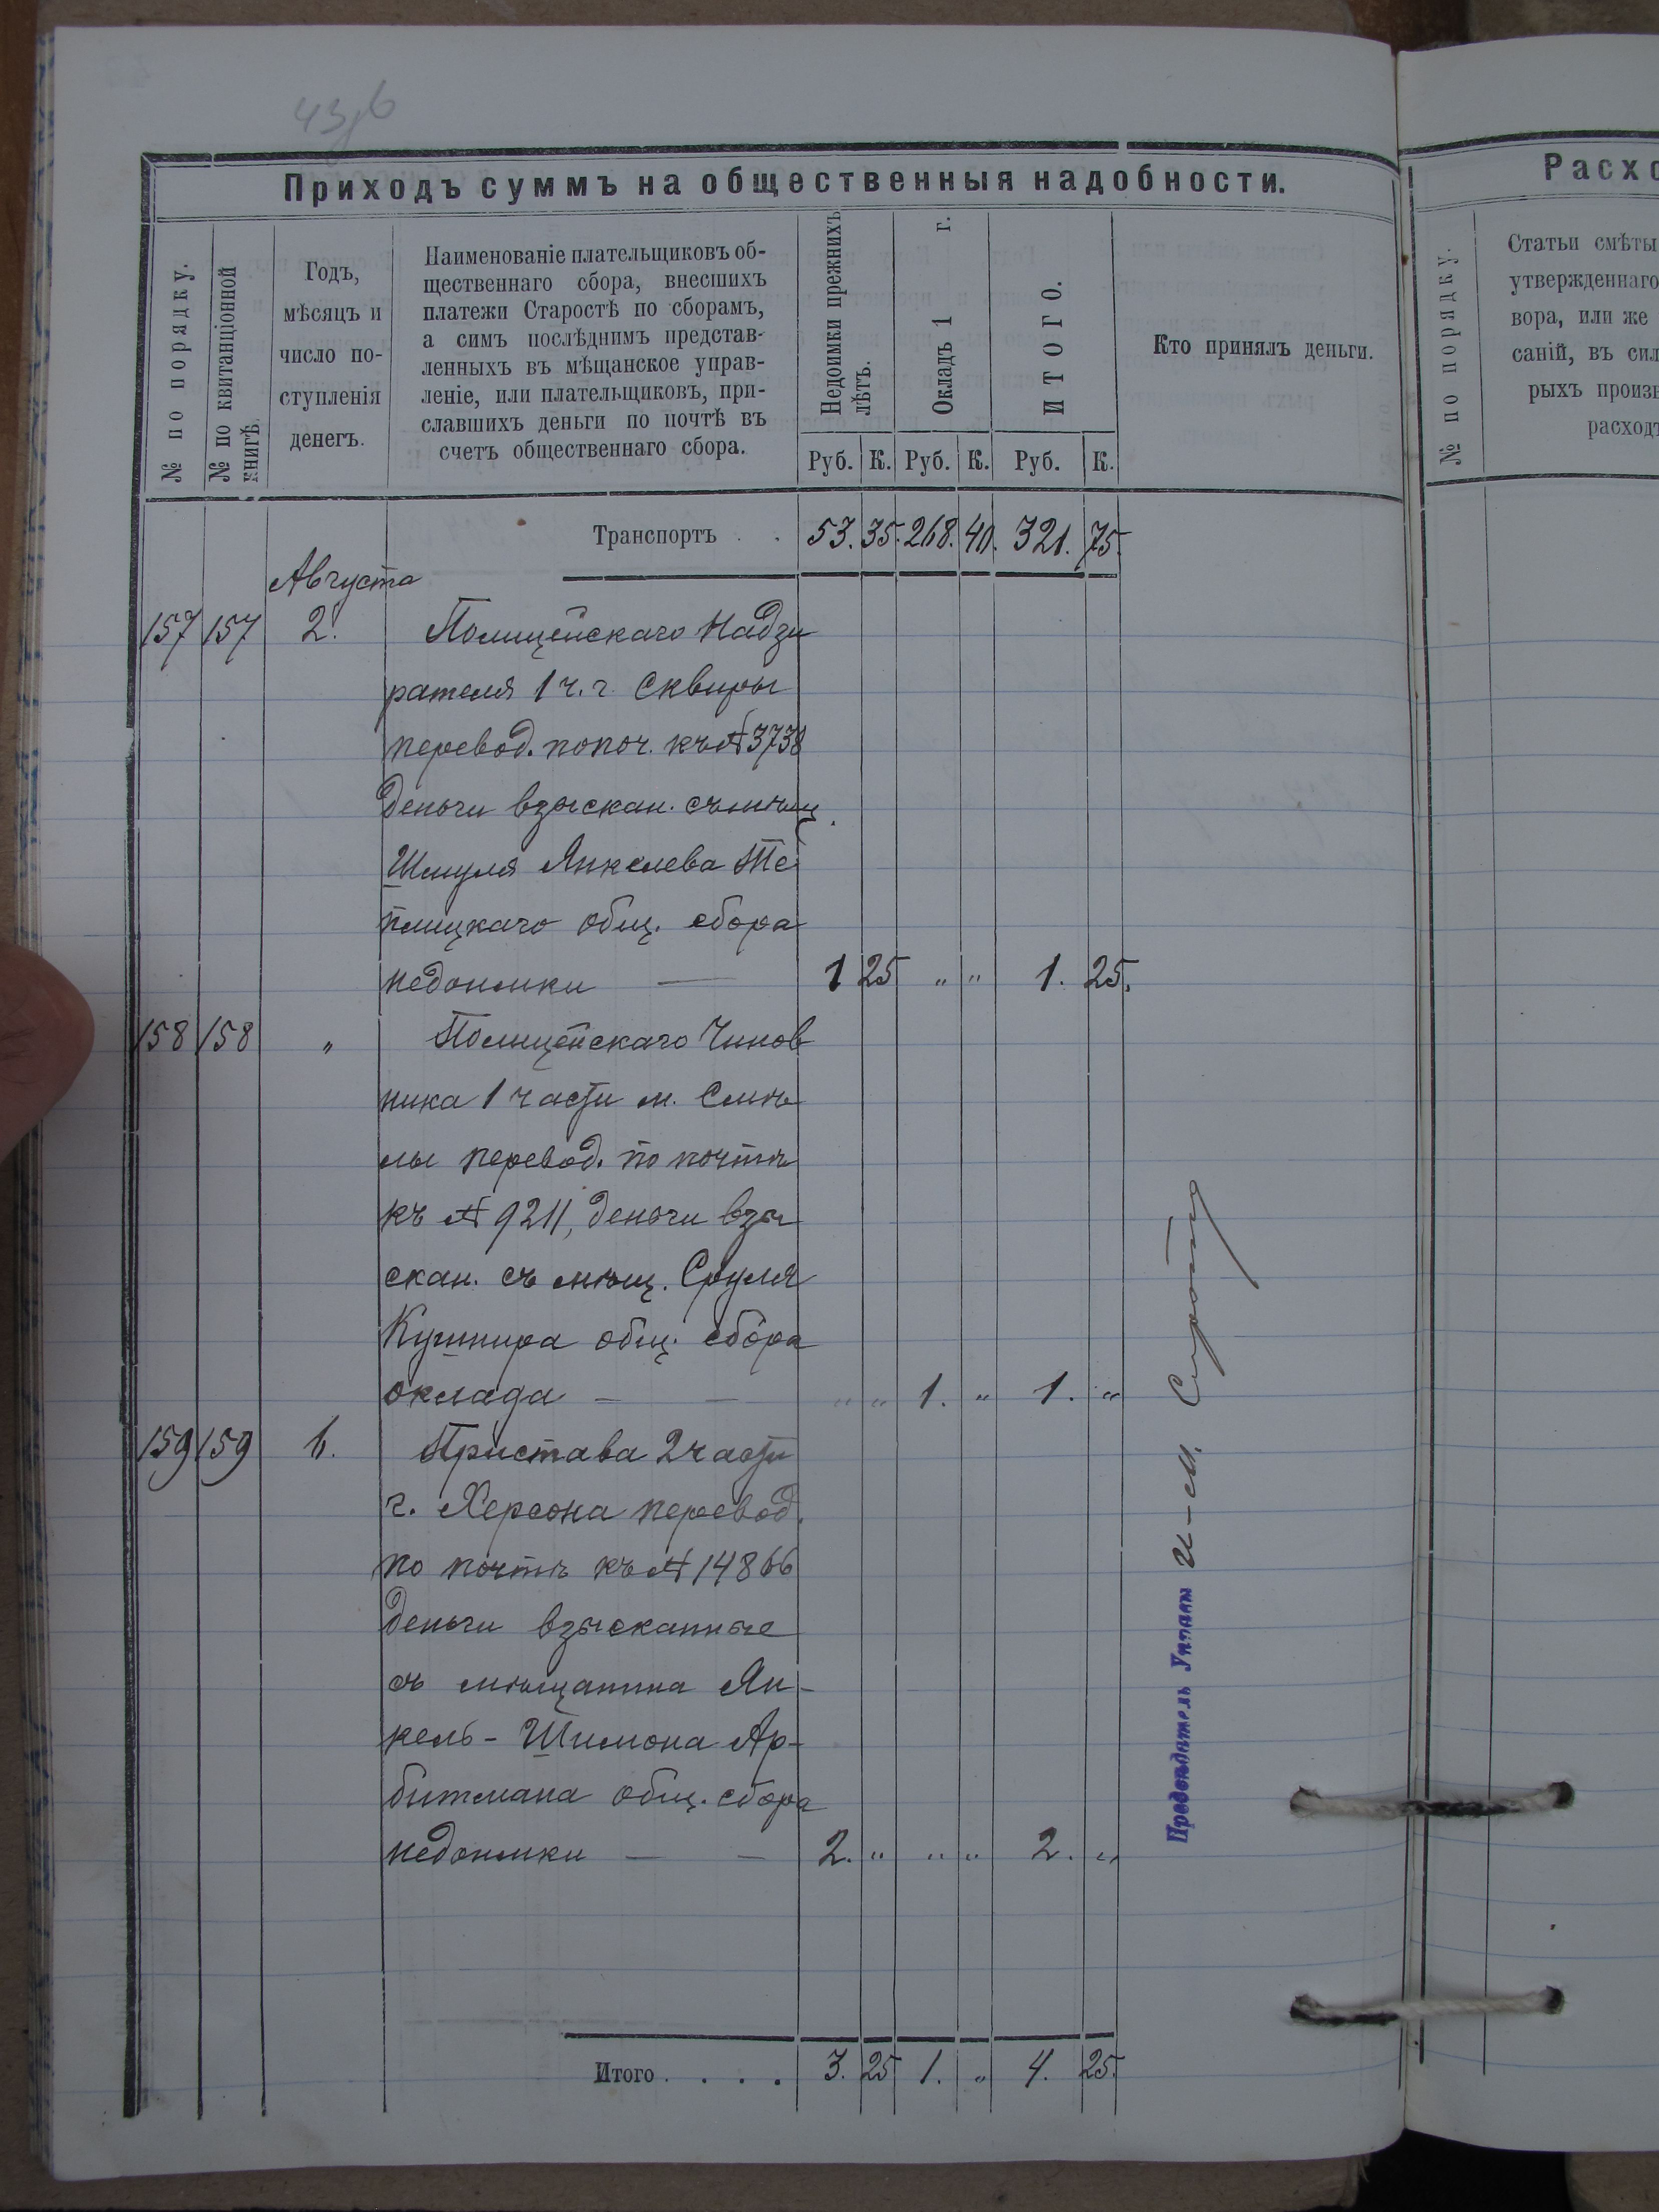 43об
Приходъ суммъ на общественныя надобности.
№ по порядку.
№ по квитанціонной книгѣ.
Годъ,
мѣсяцъ и
число по-
ступленія
денегъ.
Наименованіе плательщиковъ об-
щественнаго сбора, внесшихъ
платежи Старостѣ по сборамъ,
а симъ послѣднимъ представ-
ленныхъ въ мѣщанское управ-
леніе, или плательщиковъ, при-
славшихъ деньги по почтѣ въ
счетъ общественнаго сбора.
Недоимки прежнихъ лѣтъ.
Окладъ 1 г.
ИТОГО.
Кто принялъ деньги.
Руб. К. Руб. К. Руб. К.
Транспортъ . . 53. 35. 268. 40. 321. 75.
Августа
157 157 2. Полицейскаго Надзи
рателя 1 ч. г. Сквиры
перевод. по поч. къ № 3738
деньги взыскан. съ мѣщ.
Шмуля Янкелева Те
плицкаго общ. сбора
недоимки — 1 25 „ „ 1. 25.
158 158 „ Полицейскаго Чинов
ника 1 части м. Смѣ
лы перевод. по почтѣ
къ № 9211, деньги взы
скан. съ мѣщ. Сруля
Кушнира общ. сбора
оклада — — „ „ 1. „ 1. „
159 159 6. Пристава 2 части
г. Херсона перевод.
по почтѣ къ № 14866
деньги взысканные
съ мѣщанина Ян-
кель-Шимона Ар-
битмана общ. сбора
недоимки — — 2. „ „ „ 2. „
Итого . . . . 3. 25 1. „ 4. 25.
Предсѣдатель Управы И-М.
Расхо
№ по порядку.
Статьи смѣты
утвержденнаго
вора, или же
саній, въ сил
рыхъ произв
расходъ